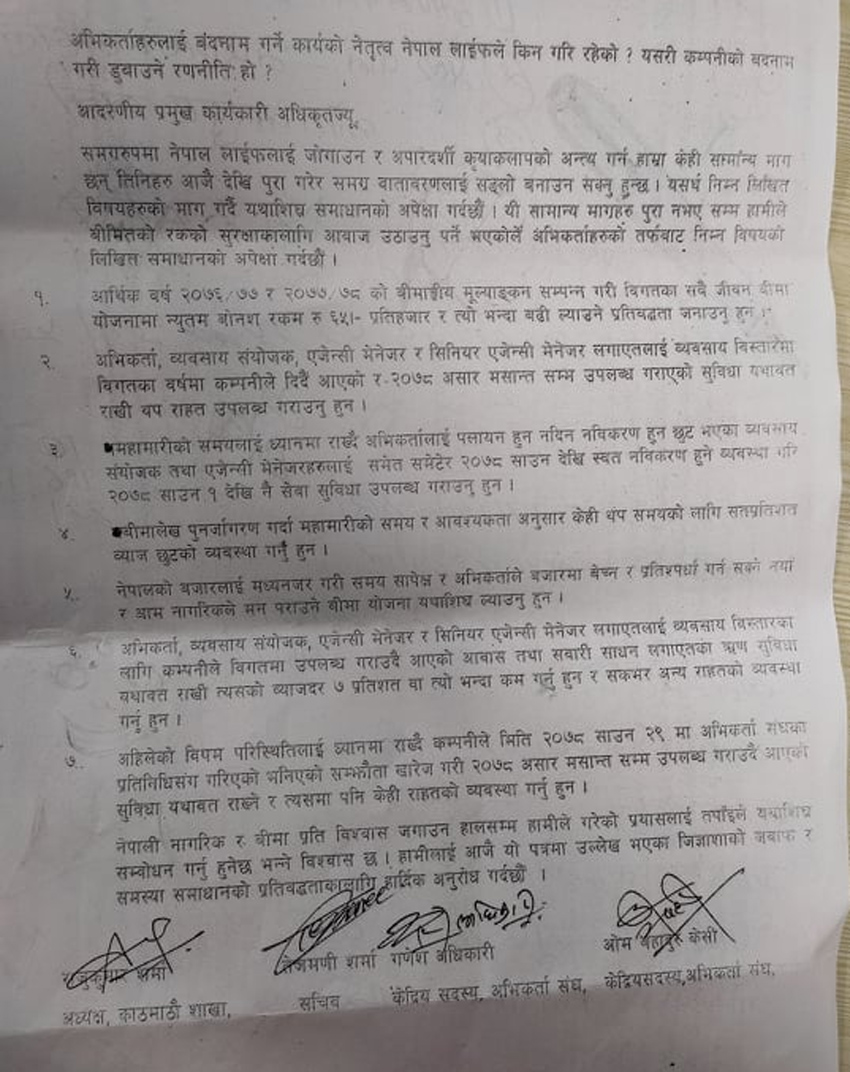 अभिकर्ताहरुलाई बदनाम गर्ने कार्यको नेतृत्व नेपाल लाईफले किन गरि रहेको ? यसरी कम्पनीको बदनाम
गरी डुबाउने रणनीति हो ?
आदरणीय प्रमुख कार्यकारी अधिकृतज्यू,
समग्ररुपमा नेपाल लाईफलाई जोगाउन र अपारदर्शी कृयाकलापको अन्त्य गर्न हाम्रा केही सामान्य माग
छन् तिनिहरु आजै देखि पुरा गरेर समग्र वातावरणलाई सङ्लो बनाउन सक्नु हुन्छ । यसर्थ निम्न लिखित
विषयहरुको माग गर्दै यथाशिघ्र समाधानको अपेक्षा गर्वछौं । यी सामान्य मागहरु पुरा नभए सम्म हामीले
बीमितको रकको सुरक्षाकालागि आवाज उठाउनु पर्ने भएकोले अभिकर्ताहरुको तर्फबाट निम्न विषयको
लिखित समाधानको अपेक्षा गर्दछौं ।
१. आर्थिक वर्ष २०७६/७७ र २०७७/७८ को बीमाङ्कीय मूल्याङ्कन सम्पन्न गरी विगतका सबै जीवन बीमा
योजनामा न्युतम बोनश रकम रु ६५।- प्रतिहजार र त्यो भन्दा बढी ल्याउने प्रतिवद्धता जनाउनु हुन ।
२. अभिकर्ता, व्यवसाय संयोजक, एजेन्सी मेनेजर र सिनियर एजेन्सी मेनेजर लगाएतलाई व्यवसाय विस्तारमा
विगतका वर्षमा कम्पनीले दिदैं आएको र २०७८ असार मसान्त सम्म उपलब्ध गराएको सुविधा यथावत
राखी थप राहत उपलब्ध गराउनु हुन ।
३. महामारीको समयलाई ध्यानमा राख्दै अभिकर्तालाई पलायन हुन नदिन नविकरण हुन छुट भएका व्यवसाय
संयोजक तथा एजेन्सी मेनेजरहरुलाई समेत समेटेर २०७८ साउन देखि स्वत नविकरण हुने व्यवस्था गरि
२०७८ साउन १ देखि नै सेवा सुविधा उपलब्ध गराउनु हुन ।
४. बीमालेख पुनर्जागरण गर्दा महामारीको समय र आवश्यकता अनुसार केही थप समयको लागि सतप्रतिशत
व्याज छुटको व्यवस्था गर्नु हुन ।
५. नेपालको बजारलाई मध्यनजर गरी समय सापेक्ष र अभिकर्ताले बजारमा बेच्न र प्रतिश्पर्धा गर्न सक्ने नयाँ
र आम नागरिकले मन पराउने बीमा योजना यथाशिघ्र ल्याउनु हुन ।
६. अभिकर्ता, व्यवसाय संयोजक, एजेन्सी मेनेजर र सिनियर एजेन्सी मेनेजर लगाएतलाई व्यवसाय विस्तारका
लागि कम्पनीले विगतमा उपलब्ध गराउदै आएको आवास तथा सवारी साधन लगाएतका ऋण सुविधा
यथावत राखी त्यसको व्याजदर ७ प्रतिशत वा त्यो भन्दा कम गर्नु हुन र सकभर अन्य राहतको व्यवस्था
गर्नु हुन ।
७. अहिलेको विषम परिस्थितिलाई ध्यानमा राख्दै कम्पनीले मिति २०७८ साउन २९ मा अभिकर्ता संघका
प्रतिनिधिसंग गरिएको भनिएको सम्झौता खारेज गरी २०७८ असार मसान्त सम्म उपलब्ध गराउदै आएको
सुविधा यथावत राख्ने र त्यसमा पनि केही राहतको व्यवस्था गर्नु हुन ।
नेपाली नागरिक र बीमा प्रति विश्वास जगाउन हालसम्म हामीले गरेको प्रयासलाई तपाँइले यथाशिघ्र
सम्वोधन गर्नु हुनेछ भन्ने विश्वास छ । हामीलाई आजै यो पत्रमा उल्लेख भएका जिज्ञाशाको जवाफ र
समस्या समाधानको प्रतिवद्धताकालागि हार्दिक अनुरोध गर्दछौं ।
शर्मा तेजमणी शर्मा गणेश अधिकारी ओम बहादुर केसी
अध्यक्ष, काठमाठौं शाखा, सचिव केद्रिय सदस्य, अभिकर्ता संघ, केद्रियसदस्य,अभिकर्ता संघ,